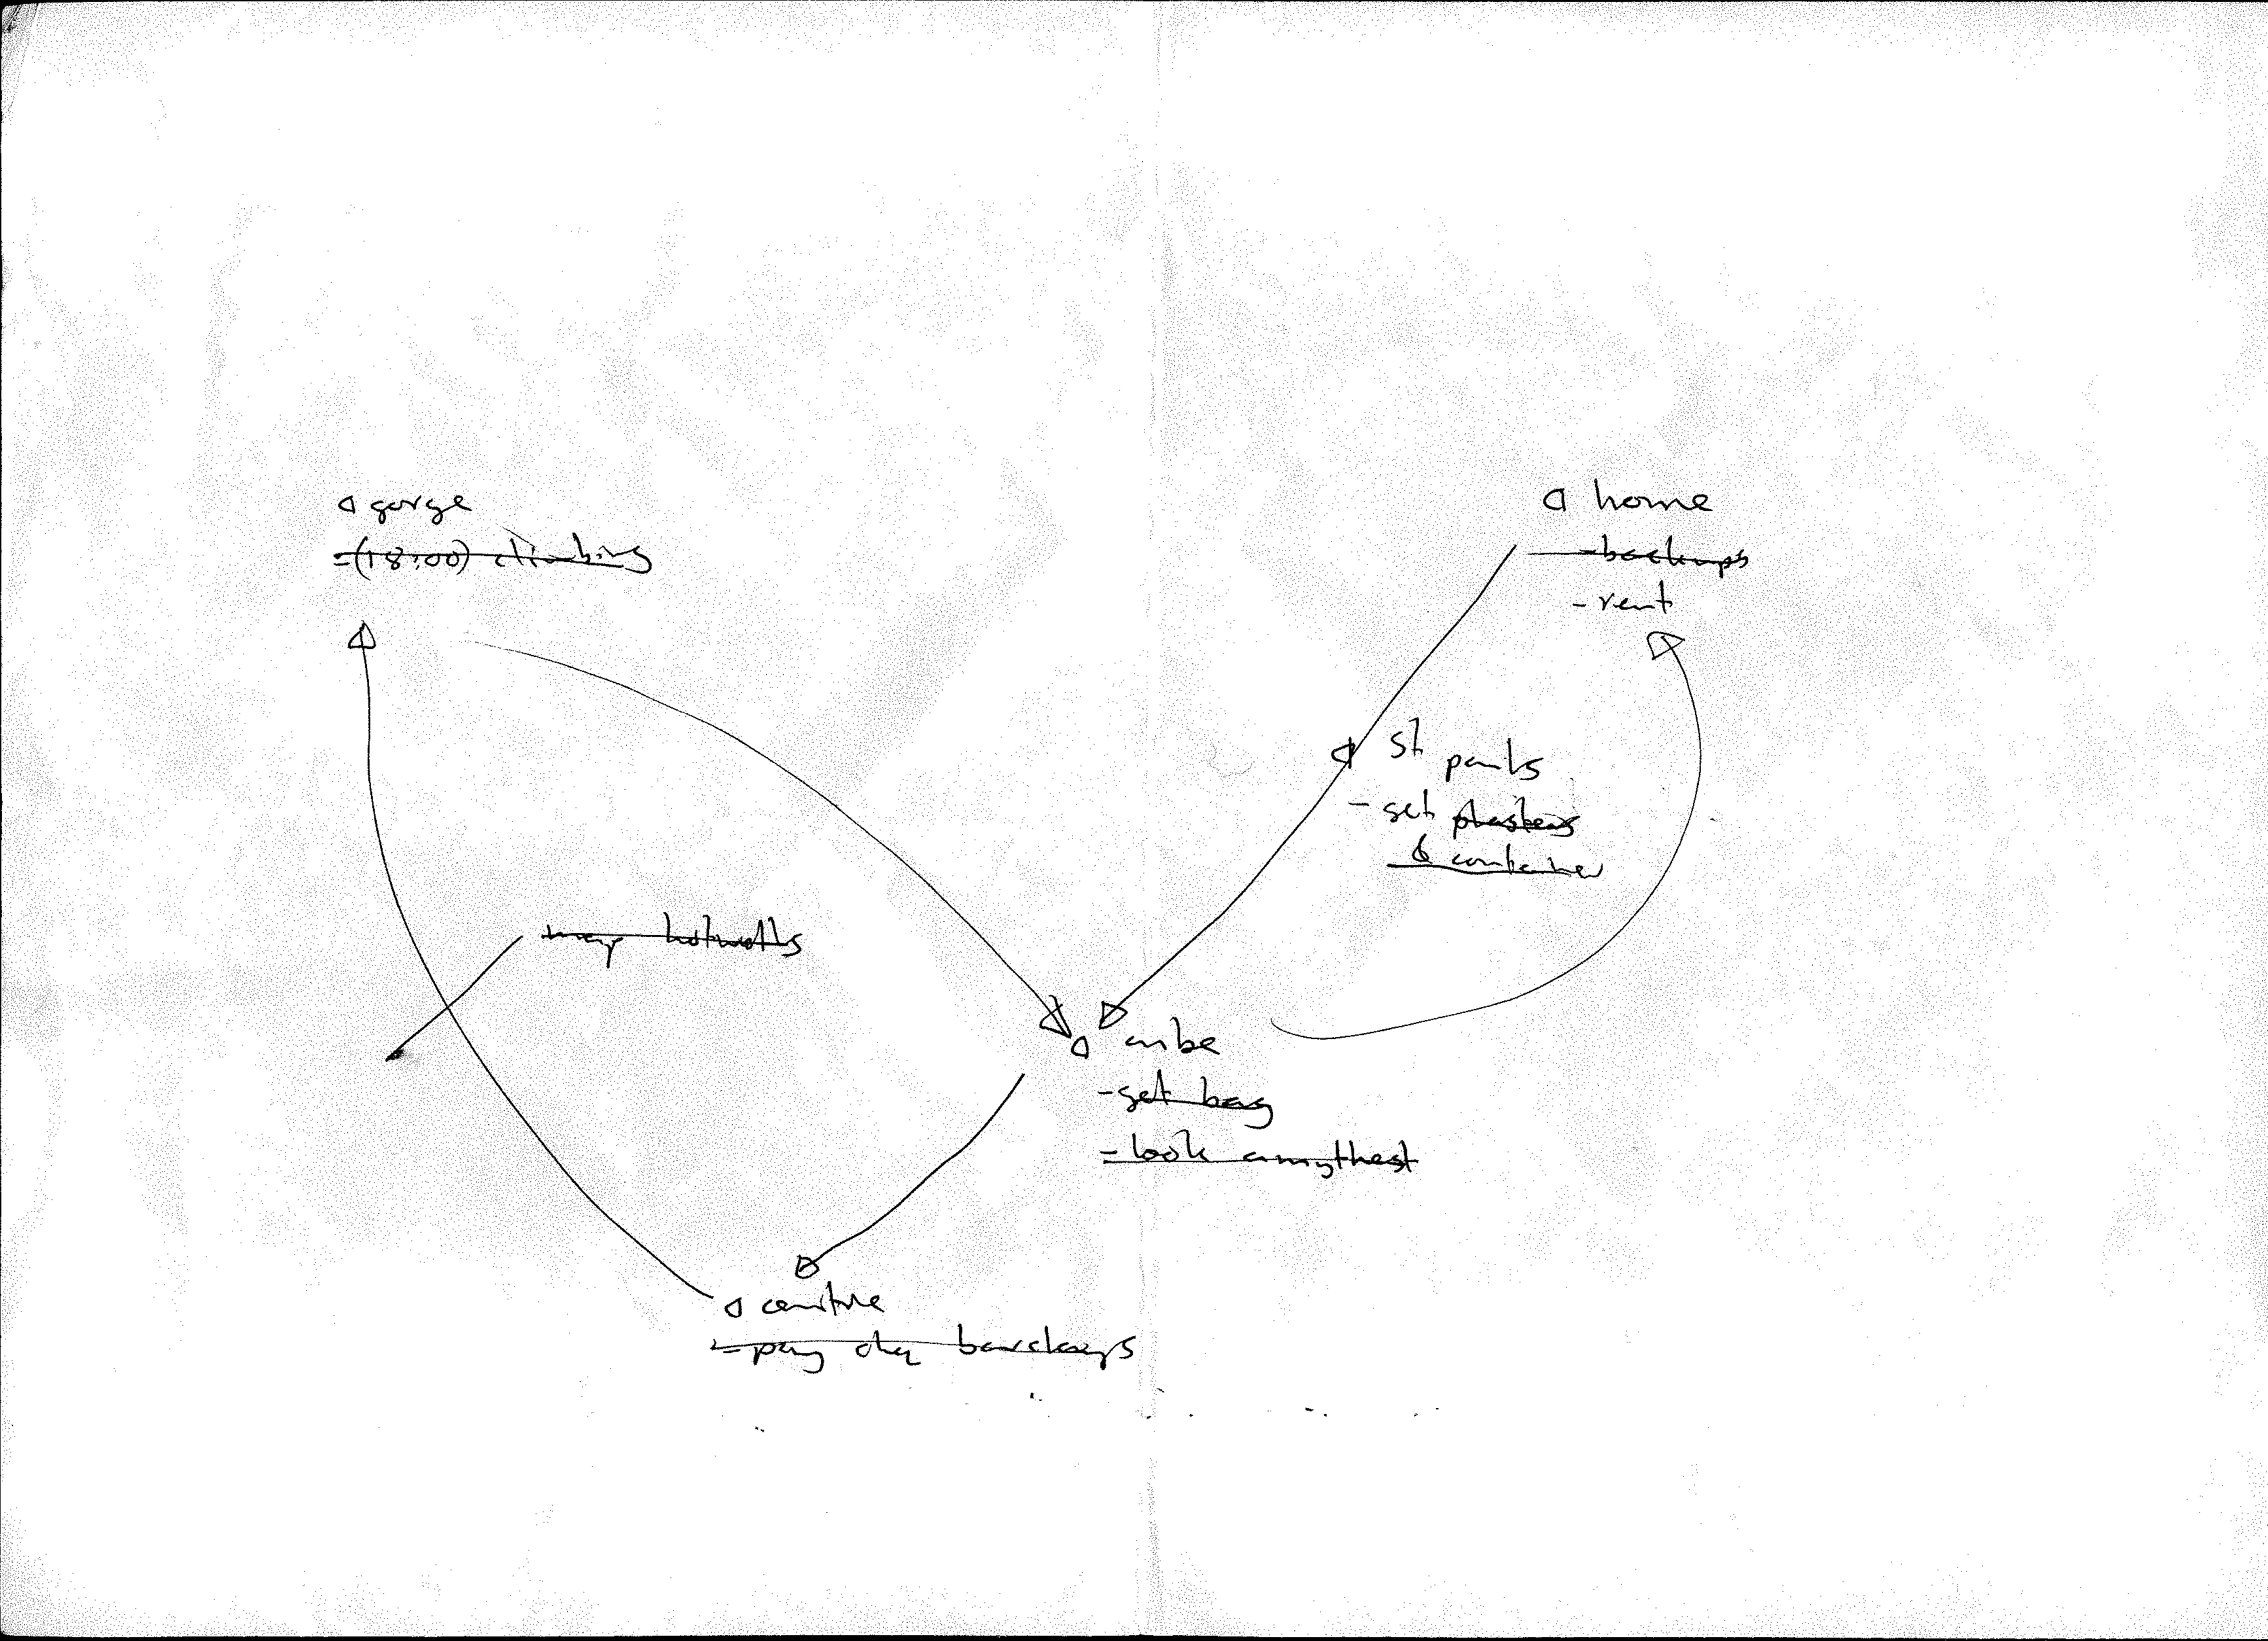 gorge
-(18:00) climbing
home
-backups
- rent
St pauls
- get plasters
& container
map hotwells
cube
-get bag
- look amythest
centre
-pay chq barclays